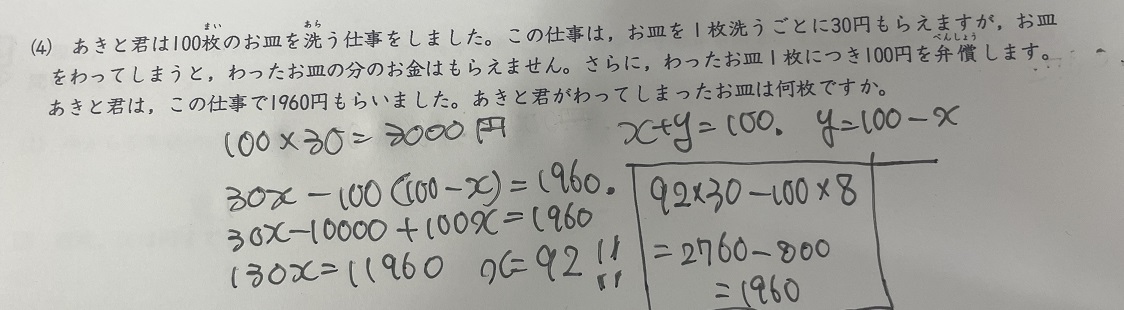 (4) あきと君は100枚のお皿を洗う仕事をしました。この仕事は，お皿を1枚洗うごとに30円もらえますが，お皿
をわってしまうと，わったお皿の分のお金はもらえません。さらに，わったお皿1枚につき100円を弁償します。
あきと君は，この仕事で1960円もらいました。あきと君がわってしまったお皿は何枚ですか。
100×30=3000円
x+y=100. y=100-x
30x-100(100-x)=1960.
30x-10000+100x=1960
130x=11960 x=92!!
92×30-100×8
=2760-800
=1960